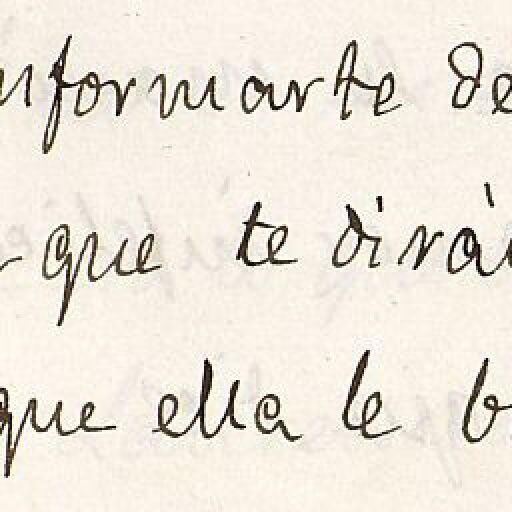 informarte de
que te dirá
que ella le